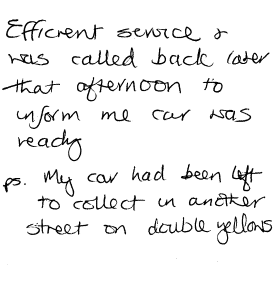 Efficient service &
was called back later
that afternoon to
inform me car was
ready
ps. My car had been left
to collect in another
street on double yellows